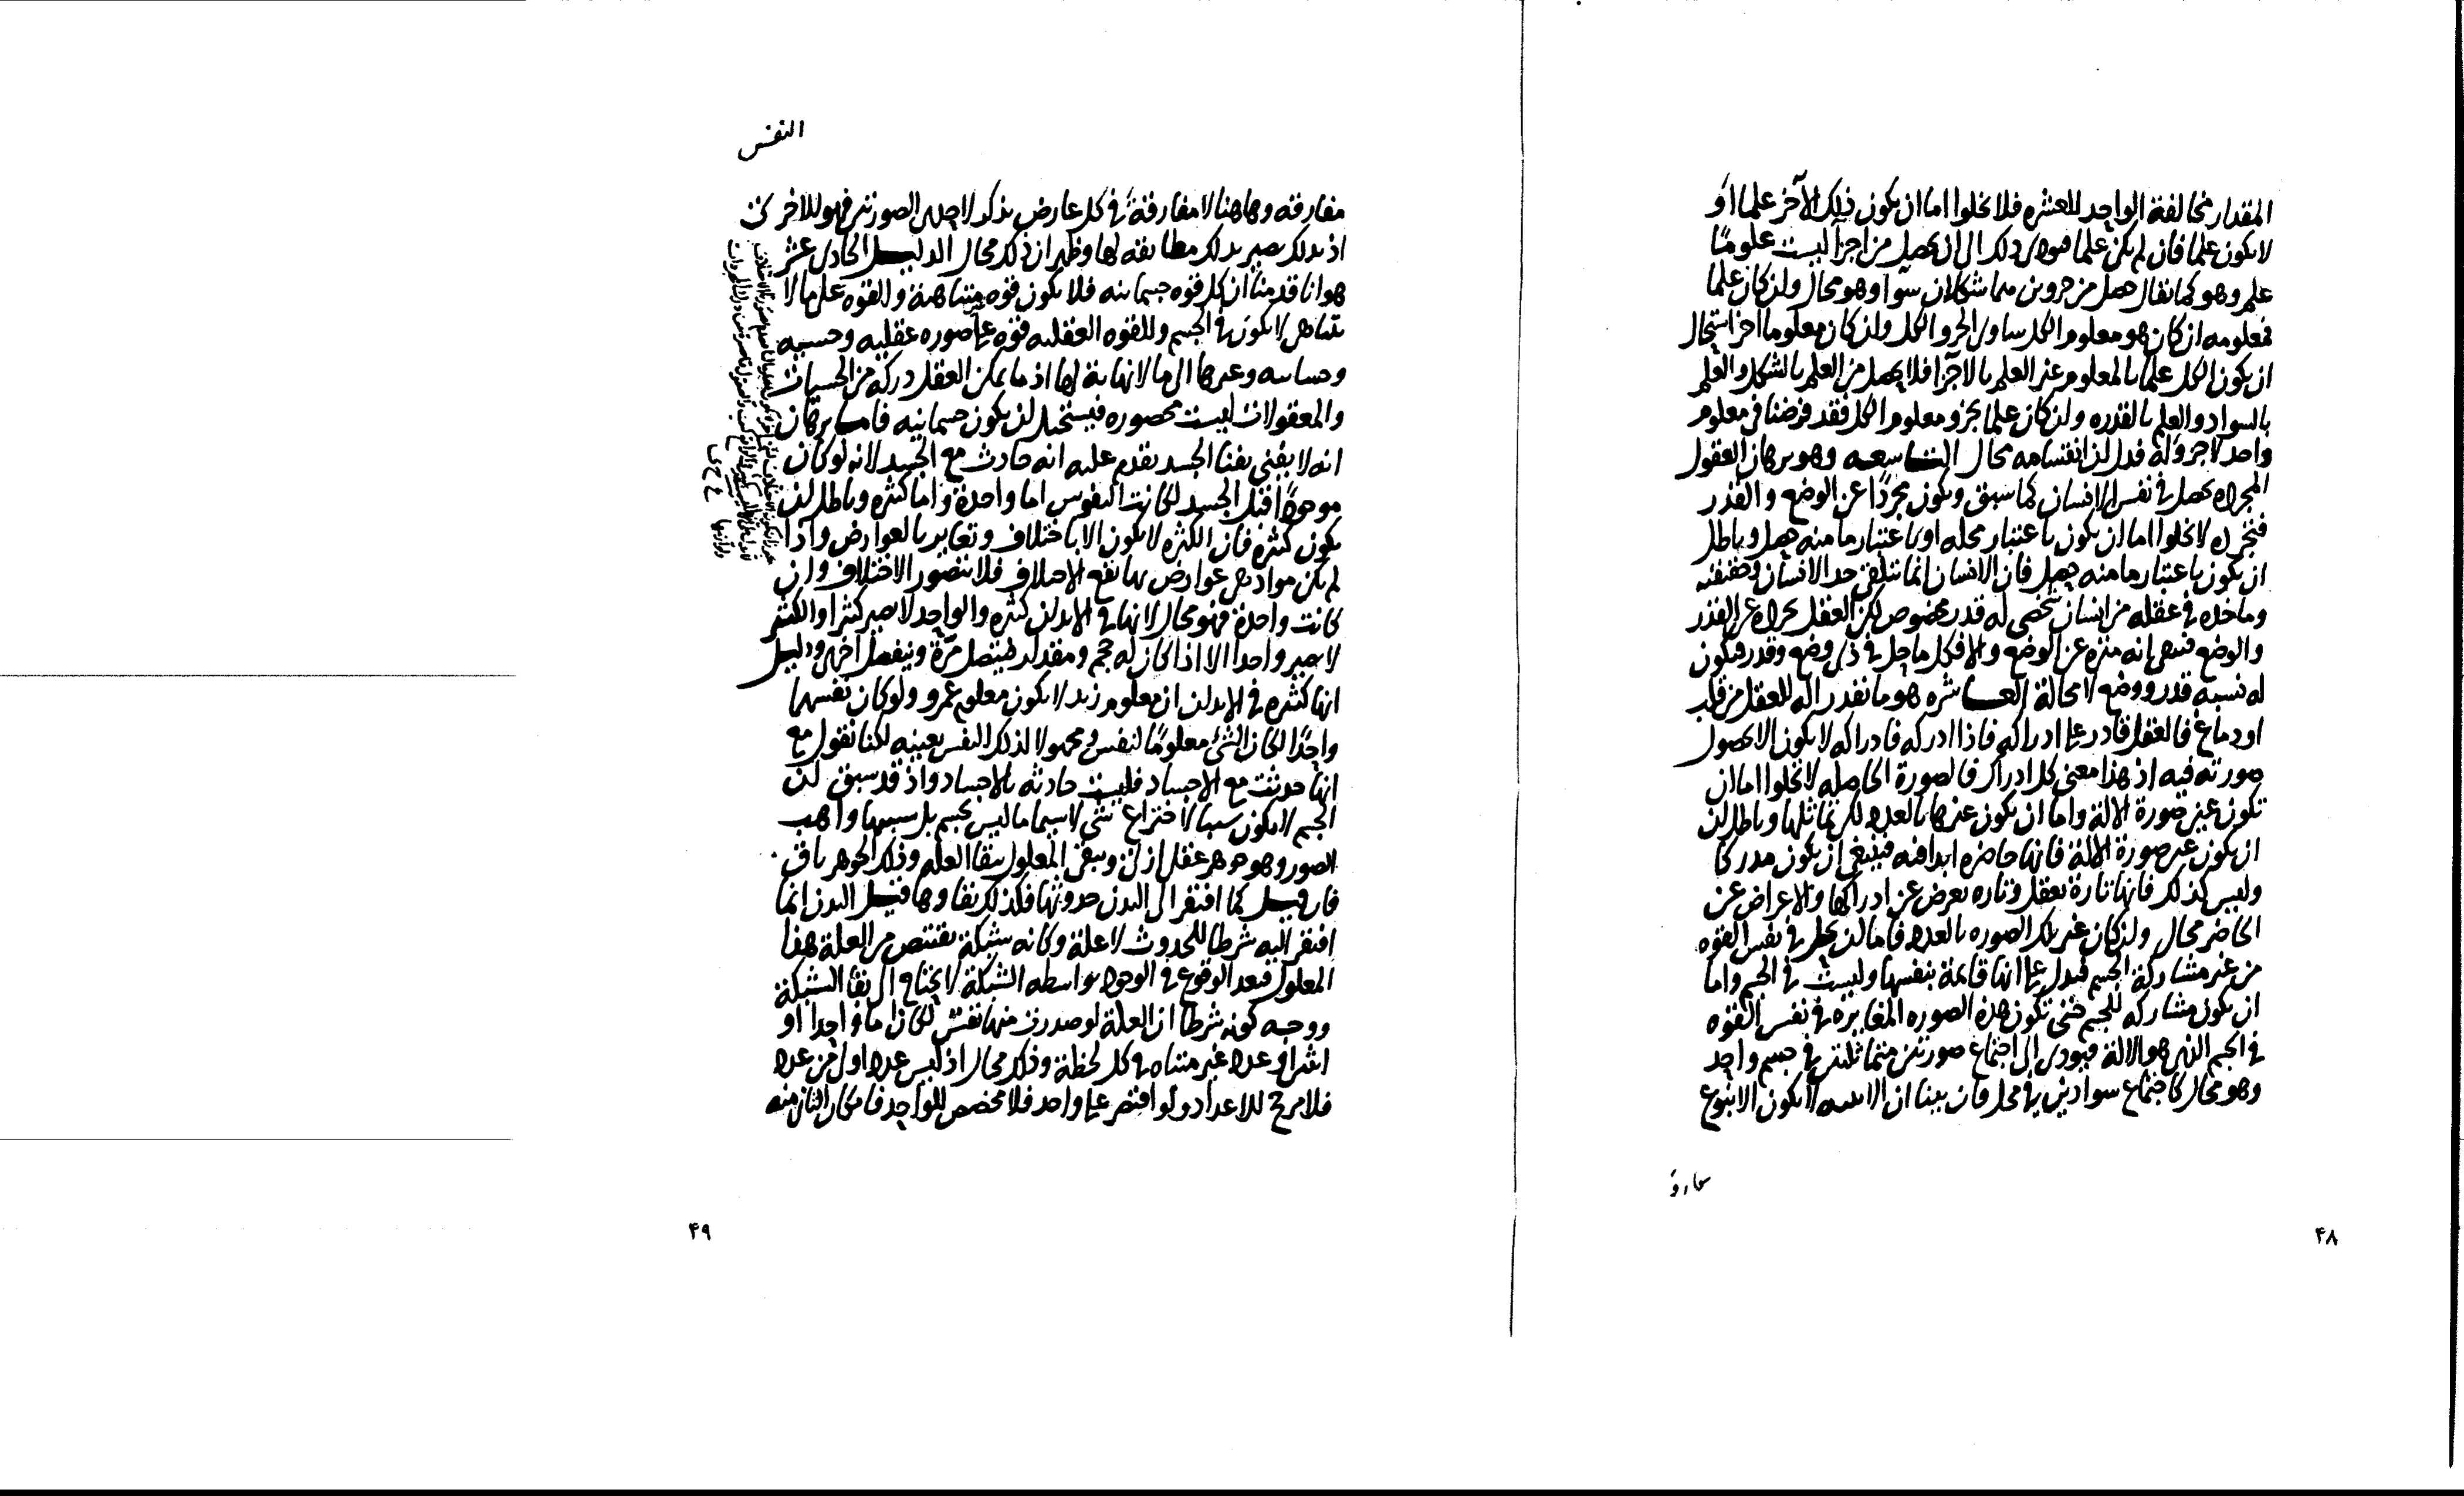 المقدار مخالفة الواحد للعشره فلا يخلوا اما ان يكون ذلك الآخر علما او
لا يكون علما فان لم يكن علما فيودى ذلك الى ان يحصل من اجزآ ليست علومًا
علم وهو كما يقال حصل من جزوين هما شكلان سوادا وهو محال وان كان علما
فمعلومه ان كان هو معلوم الكل ساوى الجزو الكل وان كان معلوما اخر استحال
ان يكون الكل علما بالمعلوم غير العلم بالاجزآ فلا يحصل من العلم بالشكل والعلم
بالسواد والعلم بالقدره وان كان علما بجزو معلوم الكل فقد فرضنا فى معلوم
واحد لا جزو له فدل ان انقسامه محال التاسعه وهو برهان ان المعقول
المجرد يحصل فى نفس الانسان كما سبق ويكون مجردًا عن الوضع والقدر
فتجرده لا يخلوا اما ان يكون باعتبار محله او باعتبار ما منه حصل وباطل
ان يكون باعتبار ما منه حصل فان الانسان انما يتلقى حد الانسان وحقيقته
وماخذه فى عقله من انسان شخصى له قدر مخصوص لكن العقل يجرده عن القدر
والوضع فبقى انه منزه عن الوضع والا فكل ما حل فى ذى وضع وقدر فيكون
له نسبه قدر ووضع لا محالة العاشره هو ما نقدر اله للعقل من قلب
او دماغ فالعقل قادر على ادراكه فاذا ادركه فادراكه لا يكون الا بحصول
صورته فيه اذ هذا معنى كل ادراك فالصورة الحاصله لا يخلوا اما ان
تكون عين صورة الالة واما ان يكون غيرها بالعدد لكن تماثلها وباطل ان
ان يكون عين صورة الالة فانها حاضره ابدا فيه فينبغى ان يكون مدركا
وليس كذلك فانها تارة يعقل وتاره يعرض عن ادراكها والاعراض عن
الحاضر محال وان كان غير تلك الصوره بالعدد فاما ان يحل فى نفس القوه
من غير مشاركة الجسم فيدل على انها قائمة بنفسها وليست فى الجسم واما
ان يكون مشاركه للجسم حتى تكون هذه الصوره المغايره فى نفس القوه
فى الجسم الذى هو الالة فيودى الى اجتماع صورتين متماثلتين فى جسم واحد
وهو محال كاجتماع سوادين فى محل فان بينا ان الاثنينيه لا يكون الا بنوع
٤٨
النفس
مفارقه وهاهنا لا مفارقة فى كل عارض يذكر لاحدى الصورتين فهو للاخرى
اذ بذلك يصير بذلك مطابقه لها وظهر ان ذلك محال الدليل الحادى عشر
هو انا قدمنا ان كل قوه جسمانيه فلا يكون قوه متناهية والقوه على ما لا
يتناهى لا يكون فى الجسم وللقوه العقليه قوه على صوره عقليه وحسيه
وحسابيه وغيرها الى ما لا نهاية لها اذ ما يمكن العقل دركه من الحسيات
والمعقولات ليست محصوره فيستحيل ان يكون جسمانيه فاما برهان
انه لا يفنى بفنا الجسد يقدم عليه انه حادث مع الجسد لانه لو كان
موجودًا قبل الجسد لكانت النفوس اما واحدة واما كثيره وباطل ان
يكون كثيره فان الكثره لا يكون الا باختلاف وتغاير بالعوارض واذا
لم يكن مواد هى عوارض بها يقع الاختلاف فلا يتصور الاختلاف وان
كانت واحدة فهو محال لانها فى الابدان كثيره والواحد لا يصير كثيرا والكثير
لا يصير واحدا الا اذا كان له حجم ومقدار فيتصل مرّة وينفصل اخرى ودليل
انها كثيره فى الابدان ان معلوم زيد لا يكون معلوم عمرو ولو كان نفسهما
واحدًا لكان الشئ معلومًا لنفس ومجهولا لذلك النفس بعينه لكنا نقول مع
انها حدثت مع الاجساد فليست حادثه بالاجساد واذ قد سبق ان
الجسم لا يكون سببا لاختراع شئ لا سيما ما ليس بجسم بل سببها واهب
الصور وهو جوهر عقلى ازلى ويبقى المعلول ببقا العله وذلك الجوهر باق
فان قيل كما افتقر الى البدن حدوثها فكذلك بقاوها قيل البدن انما
افتقر اليه شرطا للحدوث لا علة وكانه شبكة يقتنص من العلة هذا
المعلول فبعد الوقوع فى الوجود بواسطه الشبكة لا يحتاج الى بقا الشبكة
ووجه كونه شرطا ان العلة لو صدرت منها نفس لكان اما واحدا او
اثنان او عدد غير متناه فى كل لحظة وذلك محال اذ ليس عدد اولى من عدد
فلا مرجح للاعداد ولو اقتصر على واحد فلا مخصص للواحد فامكان الثانى منه
٤٩